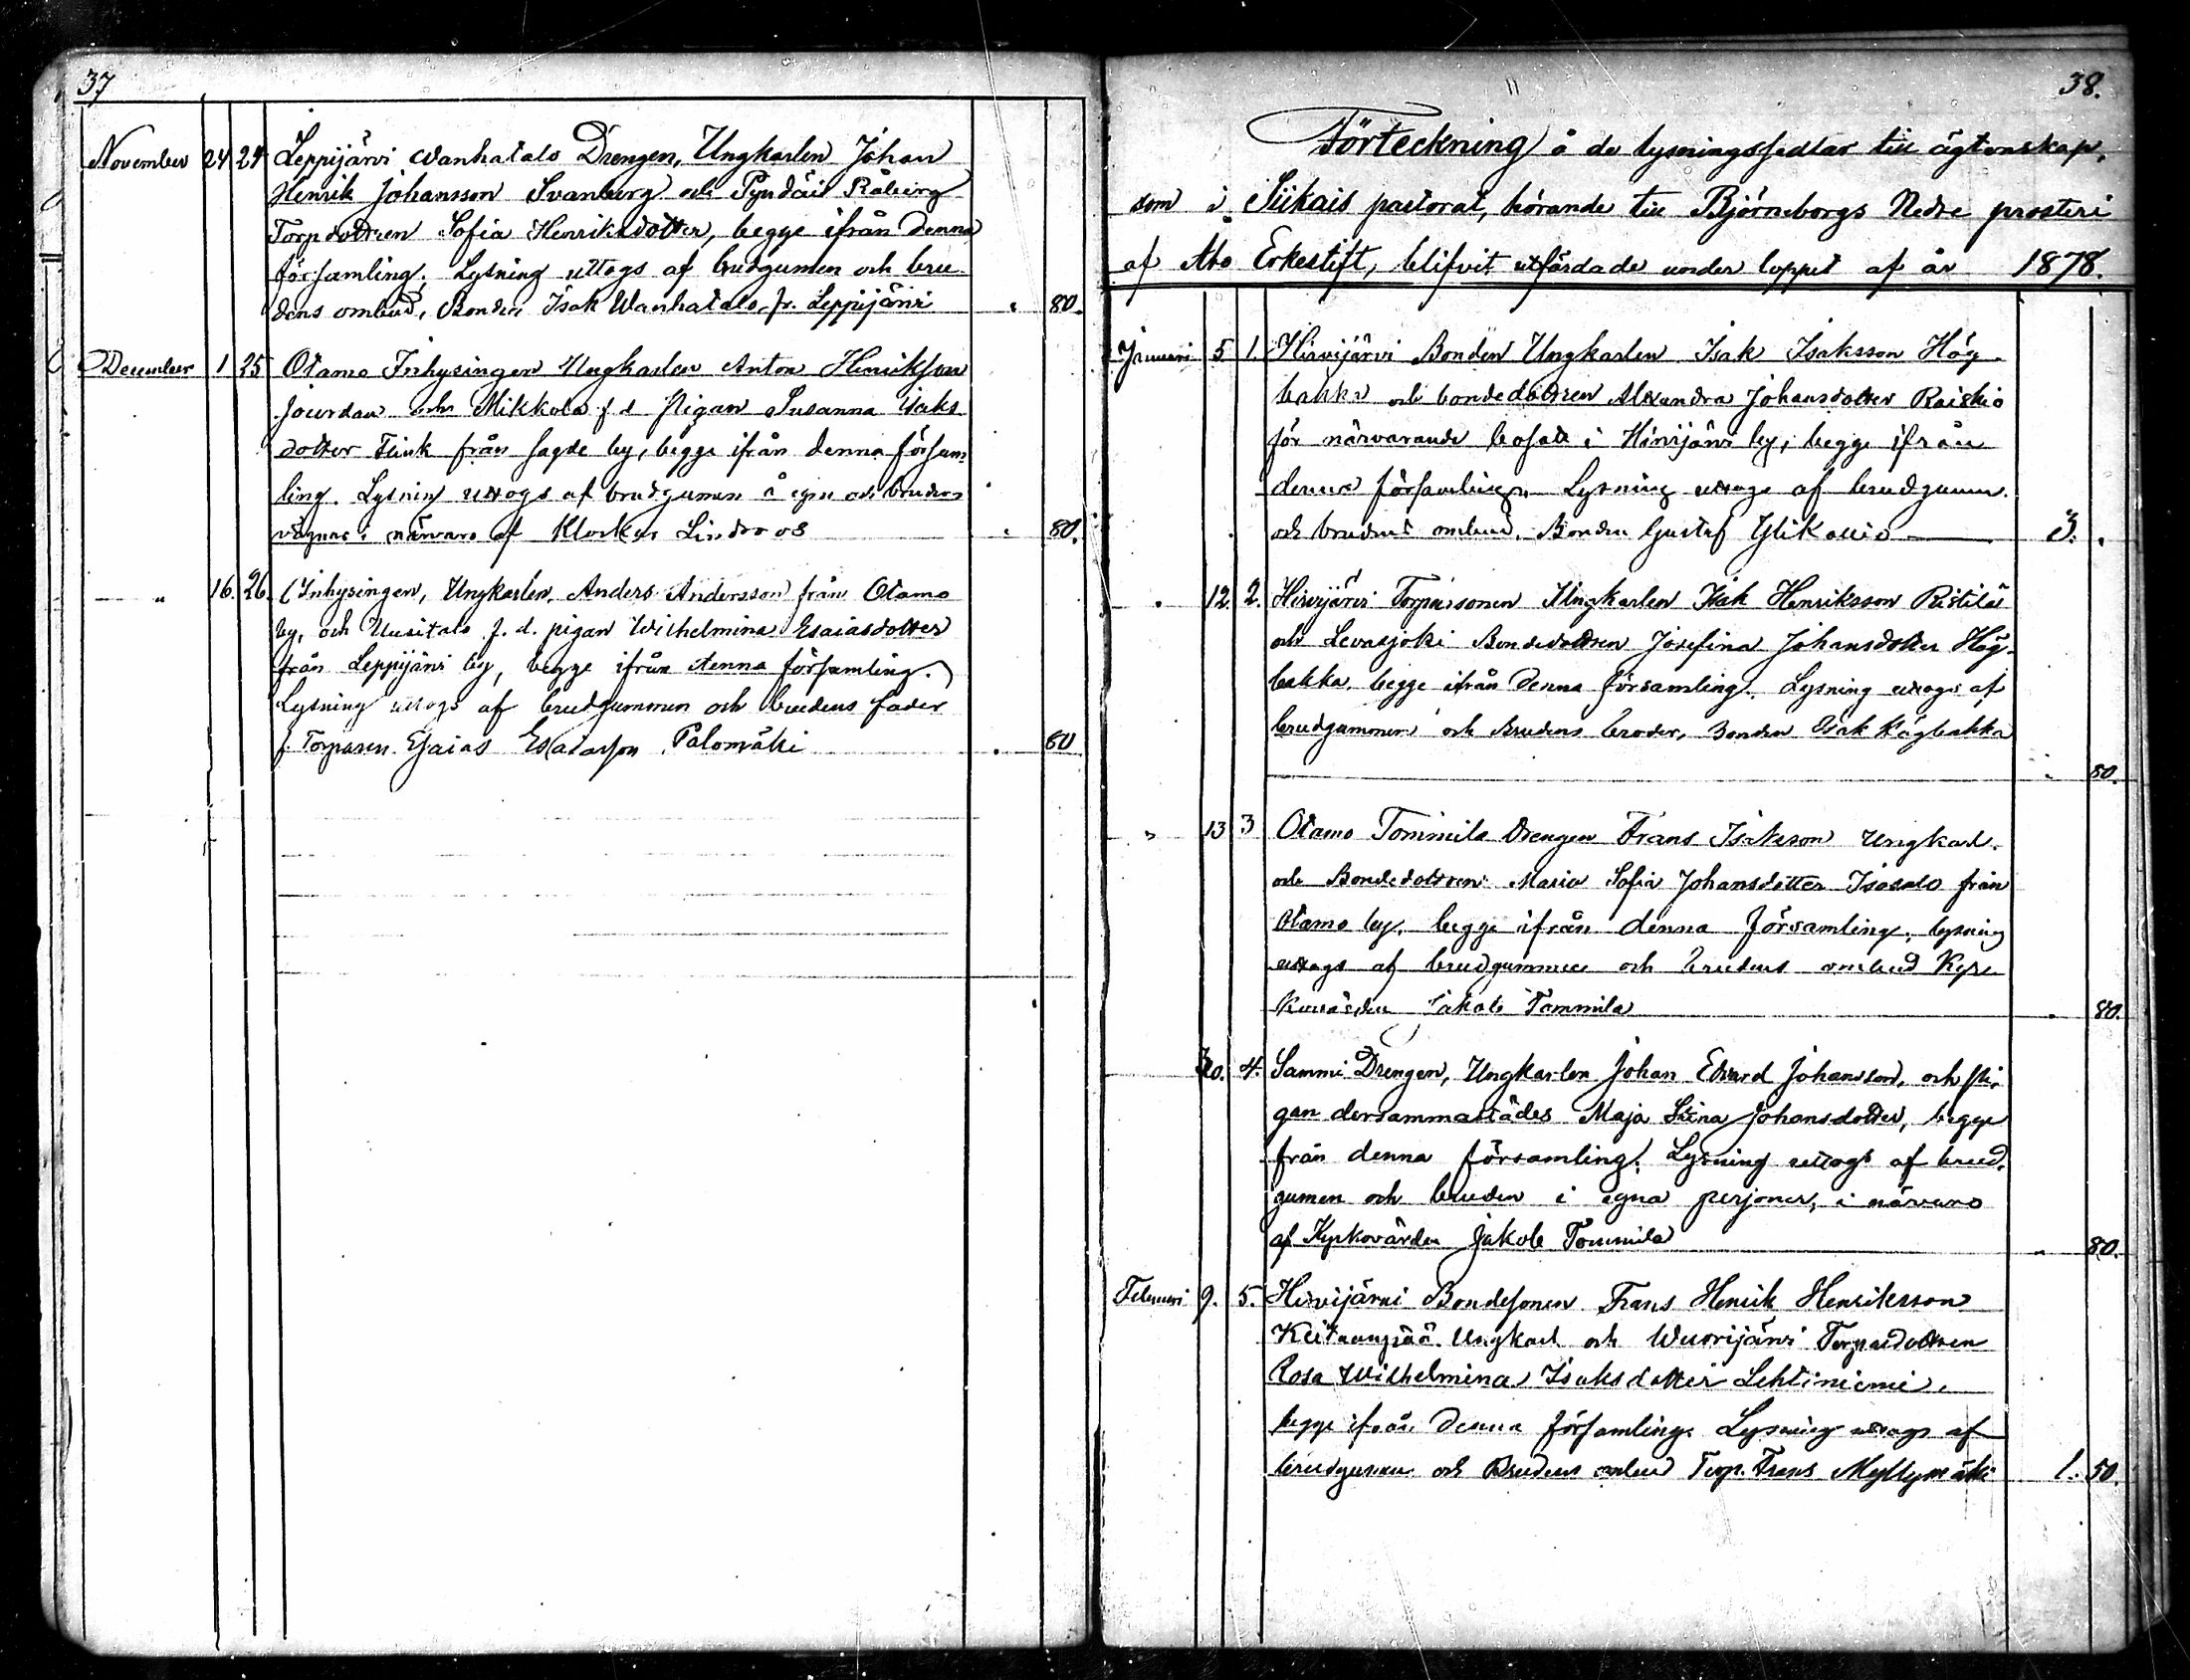 37
November 24 24 Leppijärvi Wanhatalo Drengen, Ungkarlen Johan
Henrik Johansson Svanberg och
Torpdottren Sofia Henriksdotter, begge ifrån denna
församling. Lysning uttogs af brudgumen och bru-
dens ombud, Bonden Isak Wanhatalo fr. Leppijärvi " 80.
December 1 25 Otamo Inhysingen Ungkarlen Anton Henriksson
Jourdan och Mikkola f d pigan Susanna Isaks
dotter Flink från sagde by, begge ifrån denna försam
ling. Lysning uttogs af brudgumen å egna och brudens
vägnar i närvaro af Klockar Lindroos " 80.
" 16. 26. (Inhysingen, Ungkarlen Anders Andersson från Otamo
by, och Uusitalo f. d. pigan Wilhelmina Esaiasdotter
från Leppijärvi by, begge ifrån denna församling.)
Lysning uttogs af brudgummen och brudens fader
f. Torparen Esaias Esaiasson Palomäki " 80
38.
Förteckning å de lysningssedlar till ägtenskap,
som i Siikais pastorat, hörande till Björneborgs Nedre prosteri
af Åbo Erkestift, blifvit utfärdade under loppet af år 1878.
Januari 5 1. Hirvijärvi Bonden Ungkarlen Isak Isaksson Hög-
bakka och bondedottren Alexandra Johansdotter Raiskio
för närvarande bosatt i Hirvijärvi by, begge ifrån
denna församling. Lysning uttogs af brudgumen
och brudens ombud, Bonden Gustaf Ylikallio 3. "
" 12. 2. Hirvijärvi Torparsonen Ungkarlen Isak Henriksson Ristilä
och Levasjoki Bondedottren Josefina Johansdotter Hög-
bakka, begge ifrån denna församling. Lysning uttogs af
brudgummen och Brudens broder, Bonden Isak Högbakka
" 80.
" 13 3 Otamo Tommila Drengen Frans Isaksson Ungkarl.
och Bondedottren Maria Sofia Johansdotter Isosalo från
Otamo by, begge ifrån denna församling, lysning
uttogs af brudgummen och brudens ombud Kyr-
kovärden Jakob Tommila " 80.
20. 4. Sammi Drengen, Ungkarlen Johan Edvard Johansson, och pi-
gan dersammastädes Maja Stina Johansdotter, begge
från denna församling. Lysning uttogs af brud-
gumen och bruden i egna personer, i närvaro
af Kyrkovärden Jakob Tommila " 80.
Februari 9. 5. Hirvijärvi Bondesonen Frans Henrik Henriksson
Keitaanpää Ungkarl och Wuorijärvi Torparedottren
Rosa Wilhelmina Isaksdotter Lehtiniemi,
begge ifrån denna församling. Lysning uttogs af
brudgumen och Brudens ombud Torp. Frans Myllymäki 1. 50.